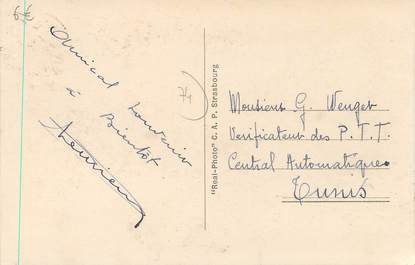 6€
Amical souvenir
à
bientôt
74
"Real-Photo" C. A. P. Strasbourg
Monsieur G. Wenger
Verificateur des P. T. T.
Central Automatique
Tunis